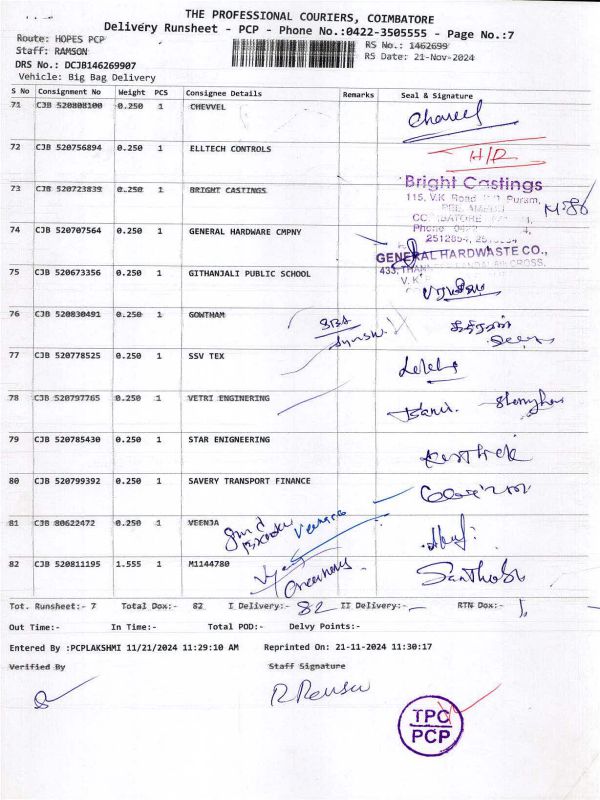 THE PROFESSIONAL COURIERS, COIMBATORE
Delivery Runsheet - PCP - Phone No.:0422-3505555 - Page No.:7
Route: HOPES PCP
RS No.: 1462699
Staff: RAMSON
RS Date: 21-Nov-2024
DRS No.: DCJB146269907
Vehicle: Big Bag Delivery
S No Consignment No Weight PCS Consignee Details Remarks Seal & Signature
71 CJB 520808100 0.250 1 CHEVVEL
72 CJB 520756894 0.250 1 ELLTECH CONTROLS H/R
73 CJB 520723839 0.250 1 BRIGHT CASTINGS
Bright Castings
115, V.K Road Puram,
74 CJB 520707564 0.250 1 GENERAL HARDWARE CMPNY
2512854,
GENERAL HARDWASTE CO.,
433, CROSS,
75 CJB 520673356 0.250 1 GITHANJALI PUBLIC SCHOOL
76 CJB 520830491 0.250 1 GOWTHAM
77 CJB 520778525 0.250 1 SSV TEX
78 CJB 520797765 0.250 1 VETRI ENGINERING
79 CJB 520785430 0.250 1 STAR ENIGNEERING
80 CJB 520799392 0.250 1 SAVERY TRANSPORT FINANCE
81 CJB 80622472 0.250 1 VEENJA
82 CJB 520811195 1.555 1 M1144780
Tot. Runsheet:- 7 Total Dox:- 82 I Delivery:- 82 II Delivery:- RTN Dox:-
Out Time:- In Time:- Total POD:- Delvy Points:-
Entered By :PCPLAKSHMI 11/21/2024 11:29:10 AM Reprinted On: 21-11-2024 11:30:17
Verified By Staff Signature
TPC
PCP